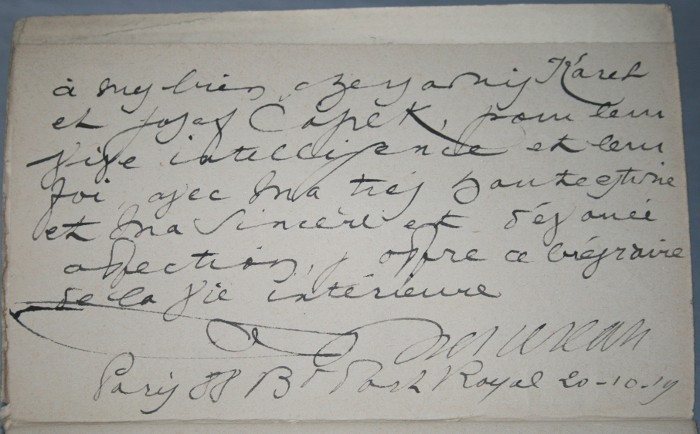 à mes bien chers amis Karel
et Josef Čapek, pour leur
vive intelligence et leur
foi, avec ma très haute estime
et ma sincère et dévouée
affection, j'offre ce bréviaire
de la vie intérieure
Paris 88 Bd Port Royal 20-10-19